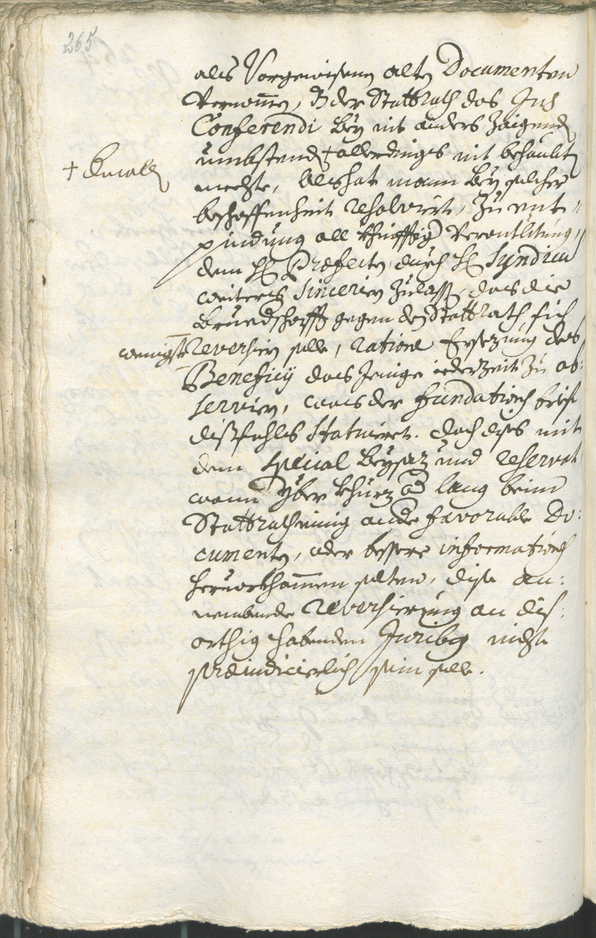 265
als Vorgewisenen alten Documenten
Vernomen, dz der Stattrath das Jus
Conferendi bey nit anders Zaigenden
umbstenden + allerdings nit behaubten
+ dermalen
mechte, Als hat mann bey solcher
beschaffenheit resolviert, Zu ent-
pindung all khünfftiger Verantwortung,
dem H. Præfecten durch H. Syndicum
weiters sincerien Zulassen, das die
Bruedschafft gegen den Stattrath sich
wenigist reversieren solle, ratione Ersezung des
Beneficij das Jenige iederzeit Zu ob-
servieren, was der fundations brief
dißfahls statuiert. doch dises mit
dem special beysaz und reservat
wann yber khurz oder lang beim
Stattrath einig andere favorable Do-
cumenta, oder bessere informationes
hervorkhommen solten, dise an-
nembende reversierung an dis-
orthig habenden Juribus nicht
præiudicierlich sein solle.